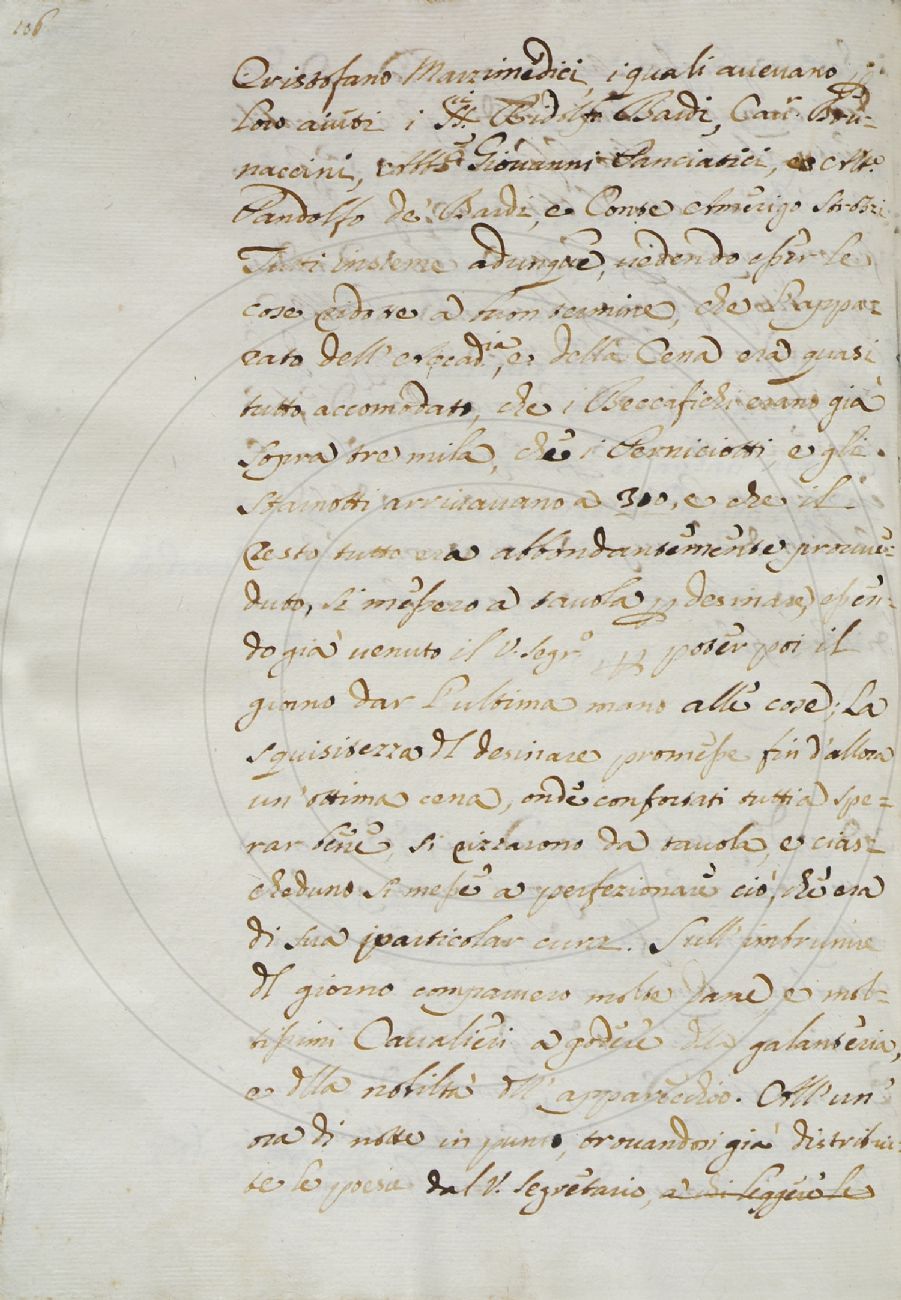 106
Cristofano Marzimedici, i quali avevano p
loro aiuti i SS.ri Ridolfo Bardi, Cav.r Bru=
naccini, Giovanni Panciatici, e
Pandolfo de' Bardi, e Conte Amerigo Strozzi
Tutti insieme adunque, vedendo esser le
cose ridotte a buon termine, che l'appa=
rato dell' Accad.ia, e della Cena era quasi
tutto accomodato, che i Beccafichi erano già
sopra tre mila, che i Perniciotti, e gli
Starnotti arrivavano a 300, e che il
resto tutto era abbondantemente provve=
duto, si messero a tavola p desinare, essen=
do già venuto il V. Segr.o p poter poi il
giorno dar l'ultima mano alle cose; La
squisitezza dl desinare promesse fin d'allora
un'ottima cena, onde confortati tutti a spe=
rar bene, si rizzarono da tavola, e cias=
cheduno si messe a perfezionare ciò, che era
di sua particolar cura. Sull' imbrunire
dl giorno comparvero molte Dame, e mol=
tissimi Cavalieri a godere dlla galanteria,
e dlla nobiltà dll' apparecchio. All' un'
ora di notte in punto, trovandosi già distribui=
te le poesie dal V. Segretario, a chi leggere le